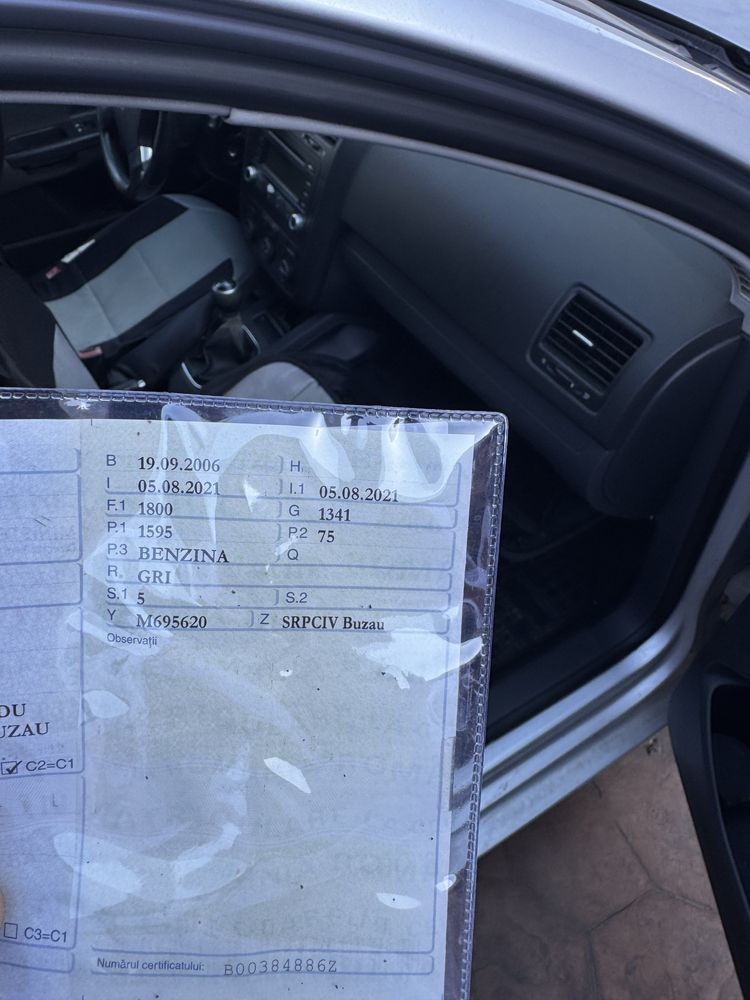 B 19.09.2006 H
I 05.08.2021 I.1 05.08.2021
F.1 1800 G 1341
P.1 1595 P.2 75
P.3 BENZINA Q
R GRI
S.1 5 S.2
Y M695620 Z SRPCIV Buzau
Observații
DU
UZAU
C2=C1
C3=C1
Numărul certificatului: B00384886Z